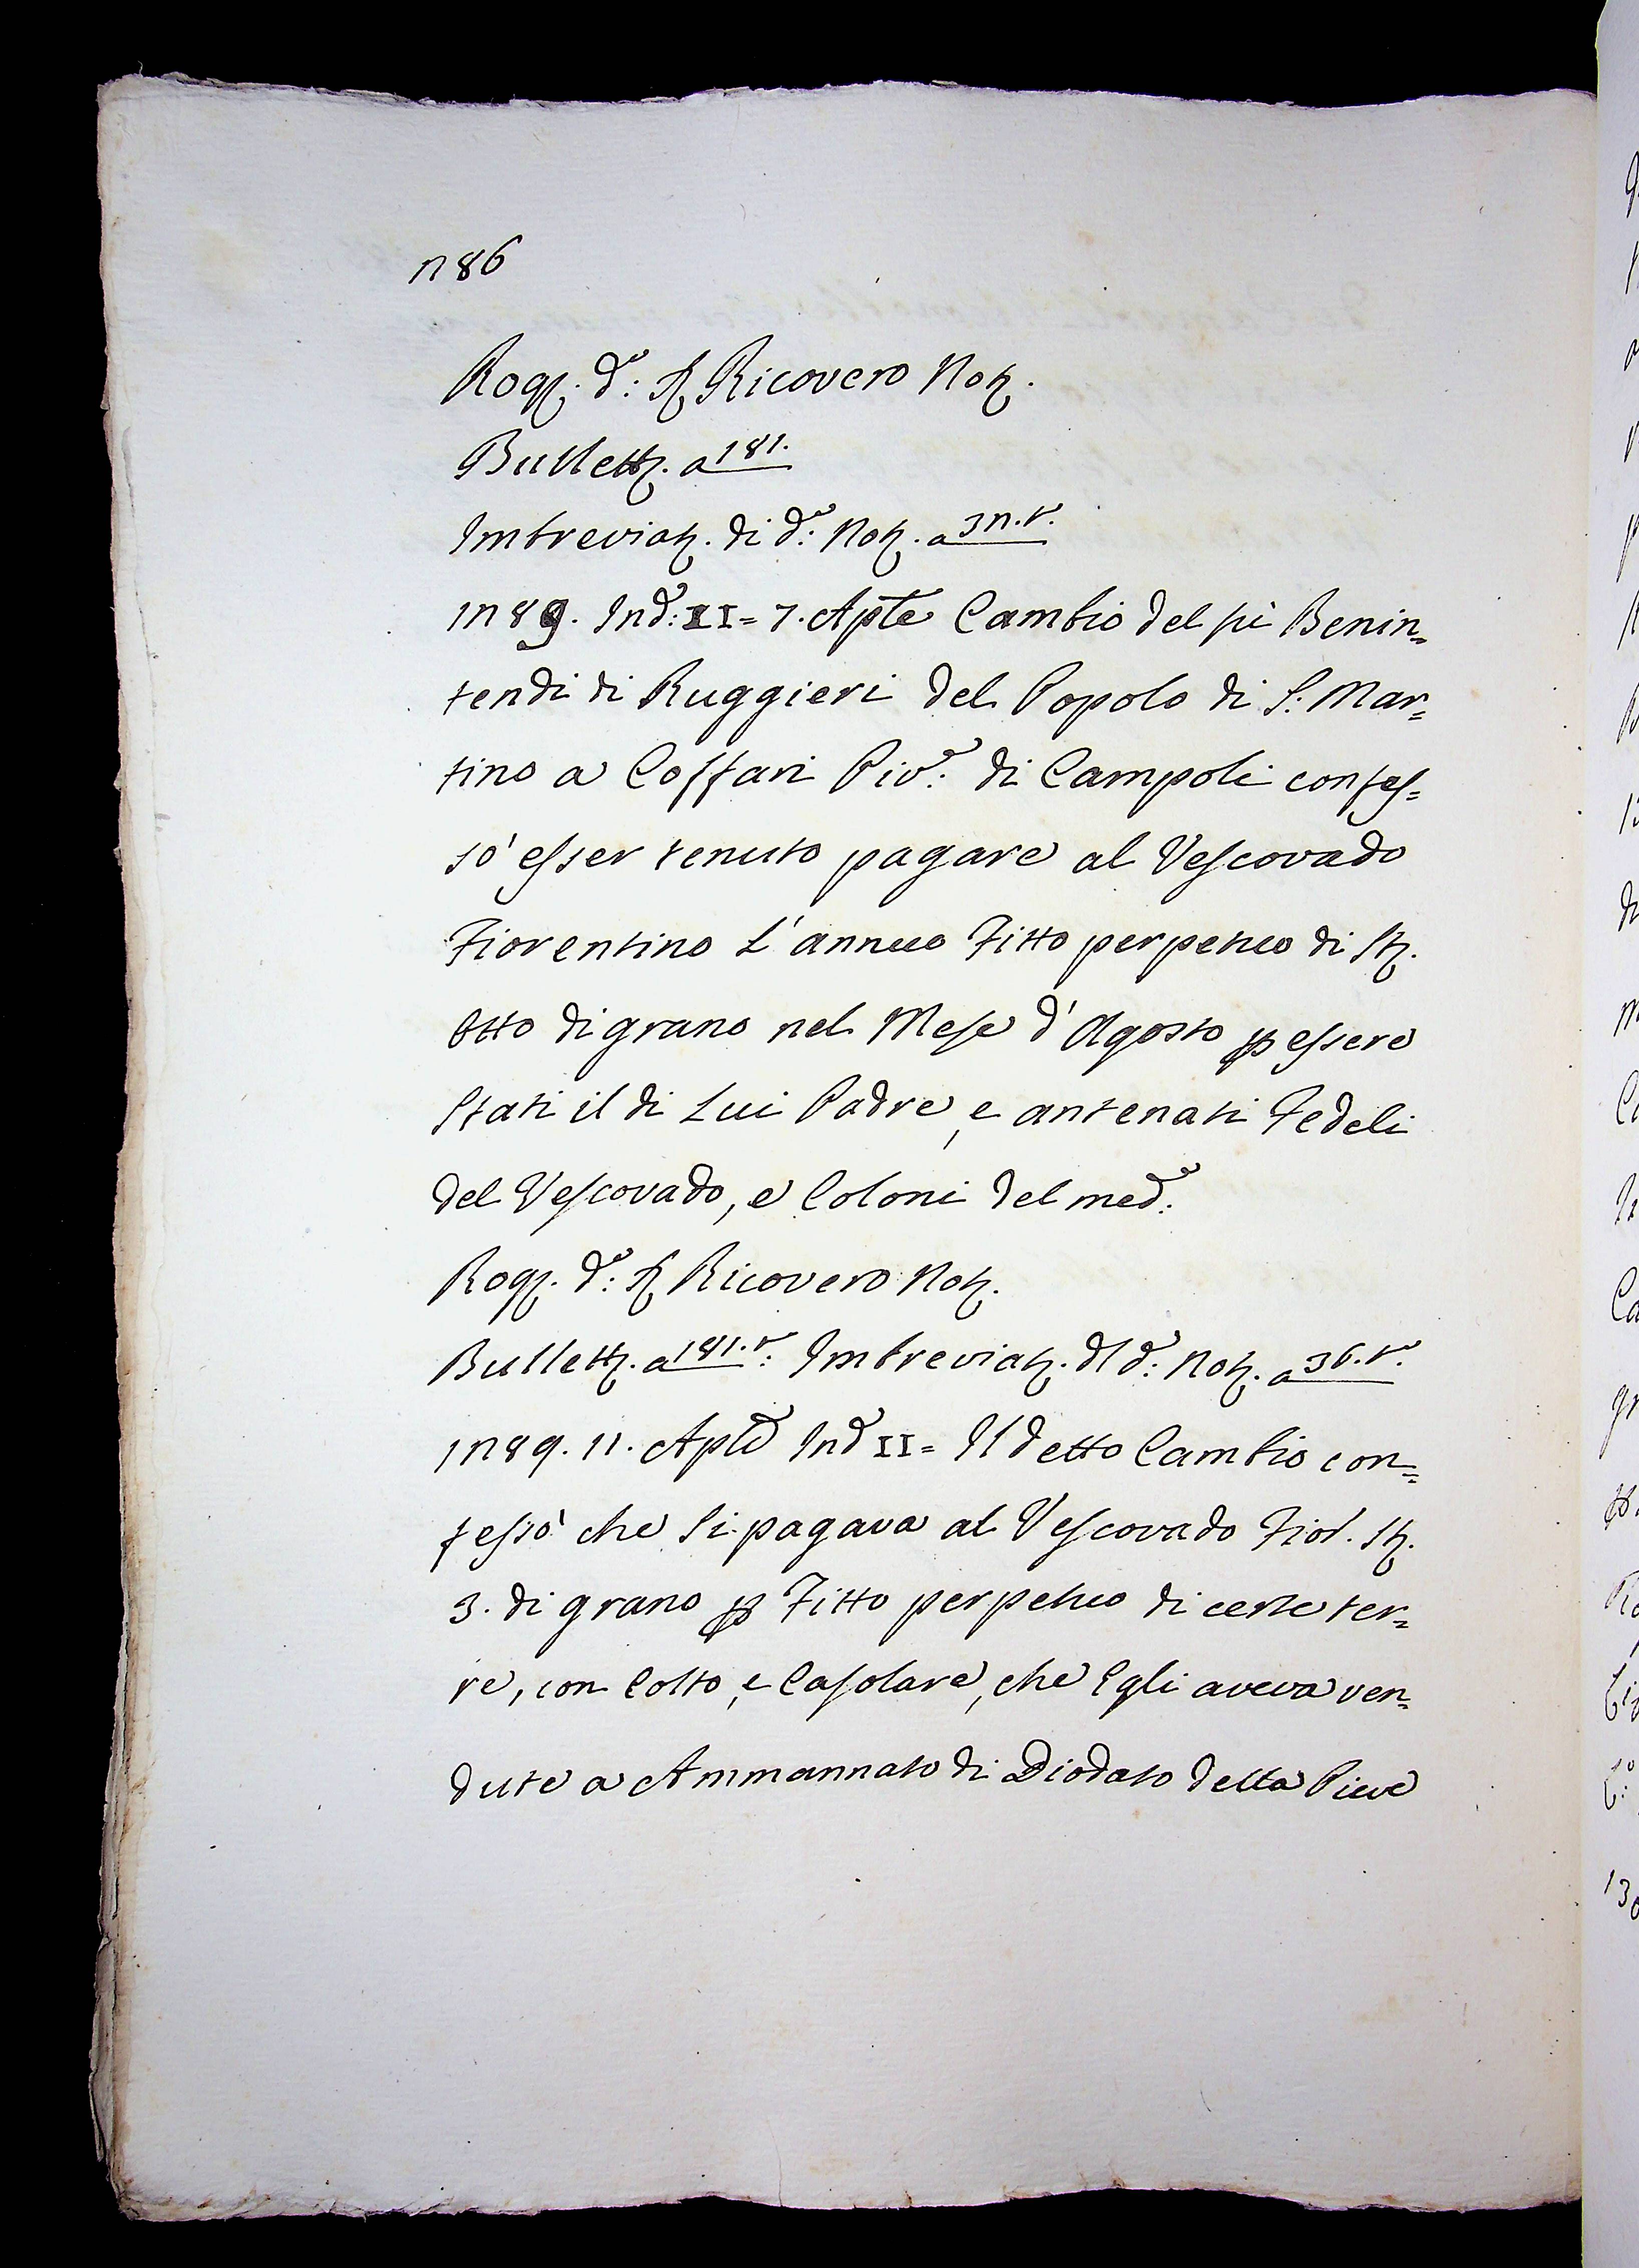 286
Rog. d.º: S. Ricovero Not.
Bullett. a 181.
Imbreviat. di d.º: Not. a 32.v.
1289. Ind.: II= 7. Aple Cambio del fù Benin=
tendi di Ruggieri del Popolo di S: Mar=
tino a Coffari Piv.: di Campoli confes=
sò esser tenuto pagare al Vescovado
Fiorentino l'annuo Fitto perpetuo di St.
Otto di grano nel Mese d'Agosto p essere
stati il di Lui Padre, e antenati Fedeli
del Vescovado, e Coloni del med.º:
Rog. d.º: S. Ricovero Not.
Bullett. a 181.v: Imbreviat. dl d.º: Not. a 36.v.
1289. 11. Aple Ind II= Il detto Cambio con=
fessò che si pagava al Vescovado Fior. St.
3. di grano p Fitto perpetuo di certe ter=
re, con Colto, e Casolare, che Egli aveva ven=
dute a Ammannato di Diodato della Pieve